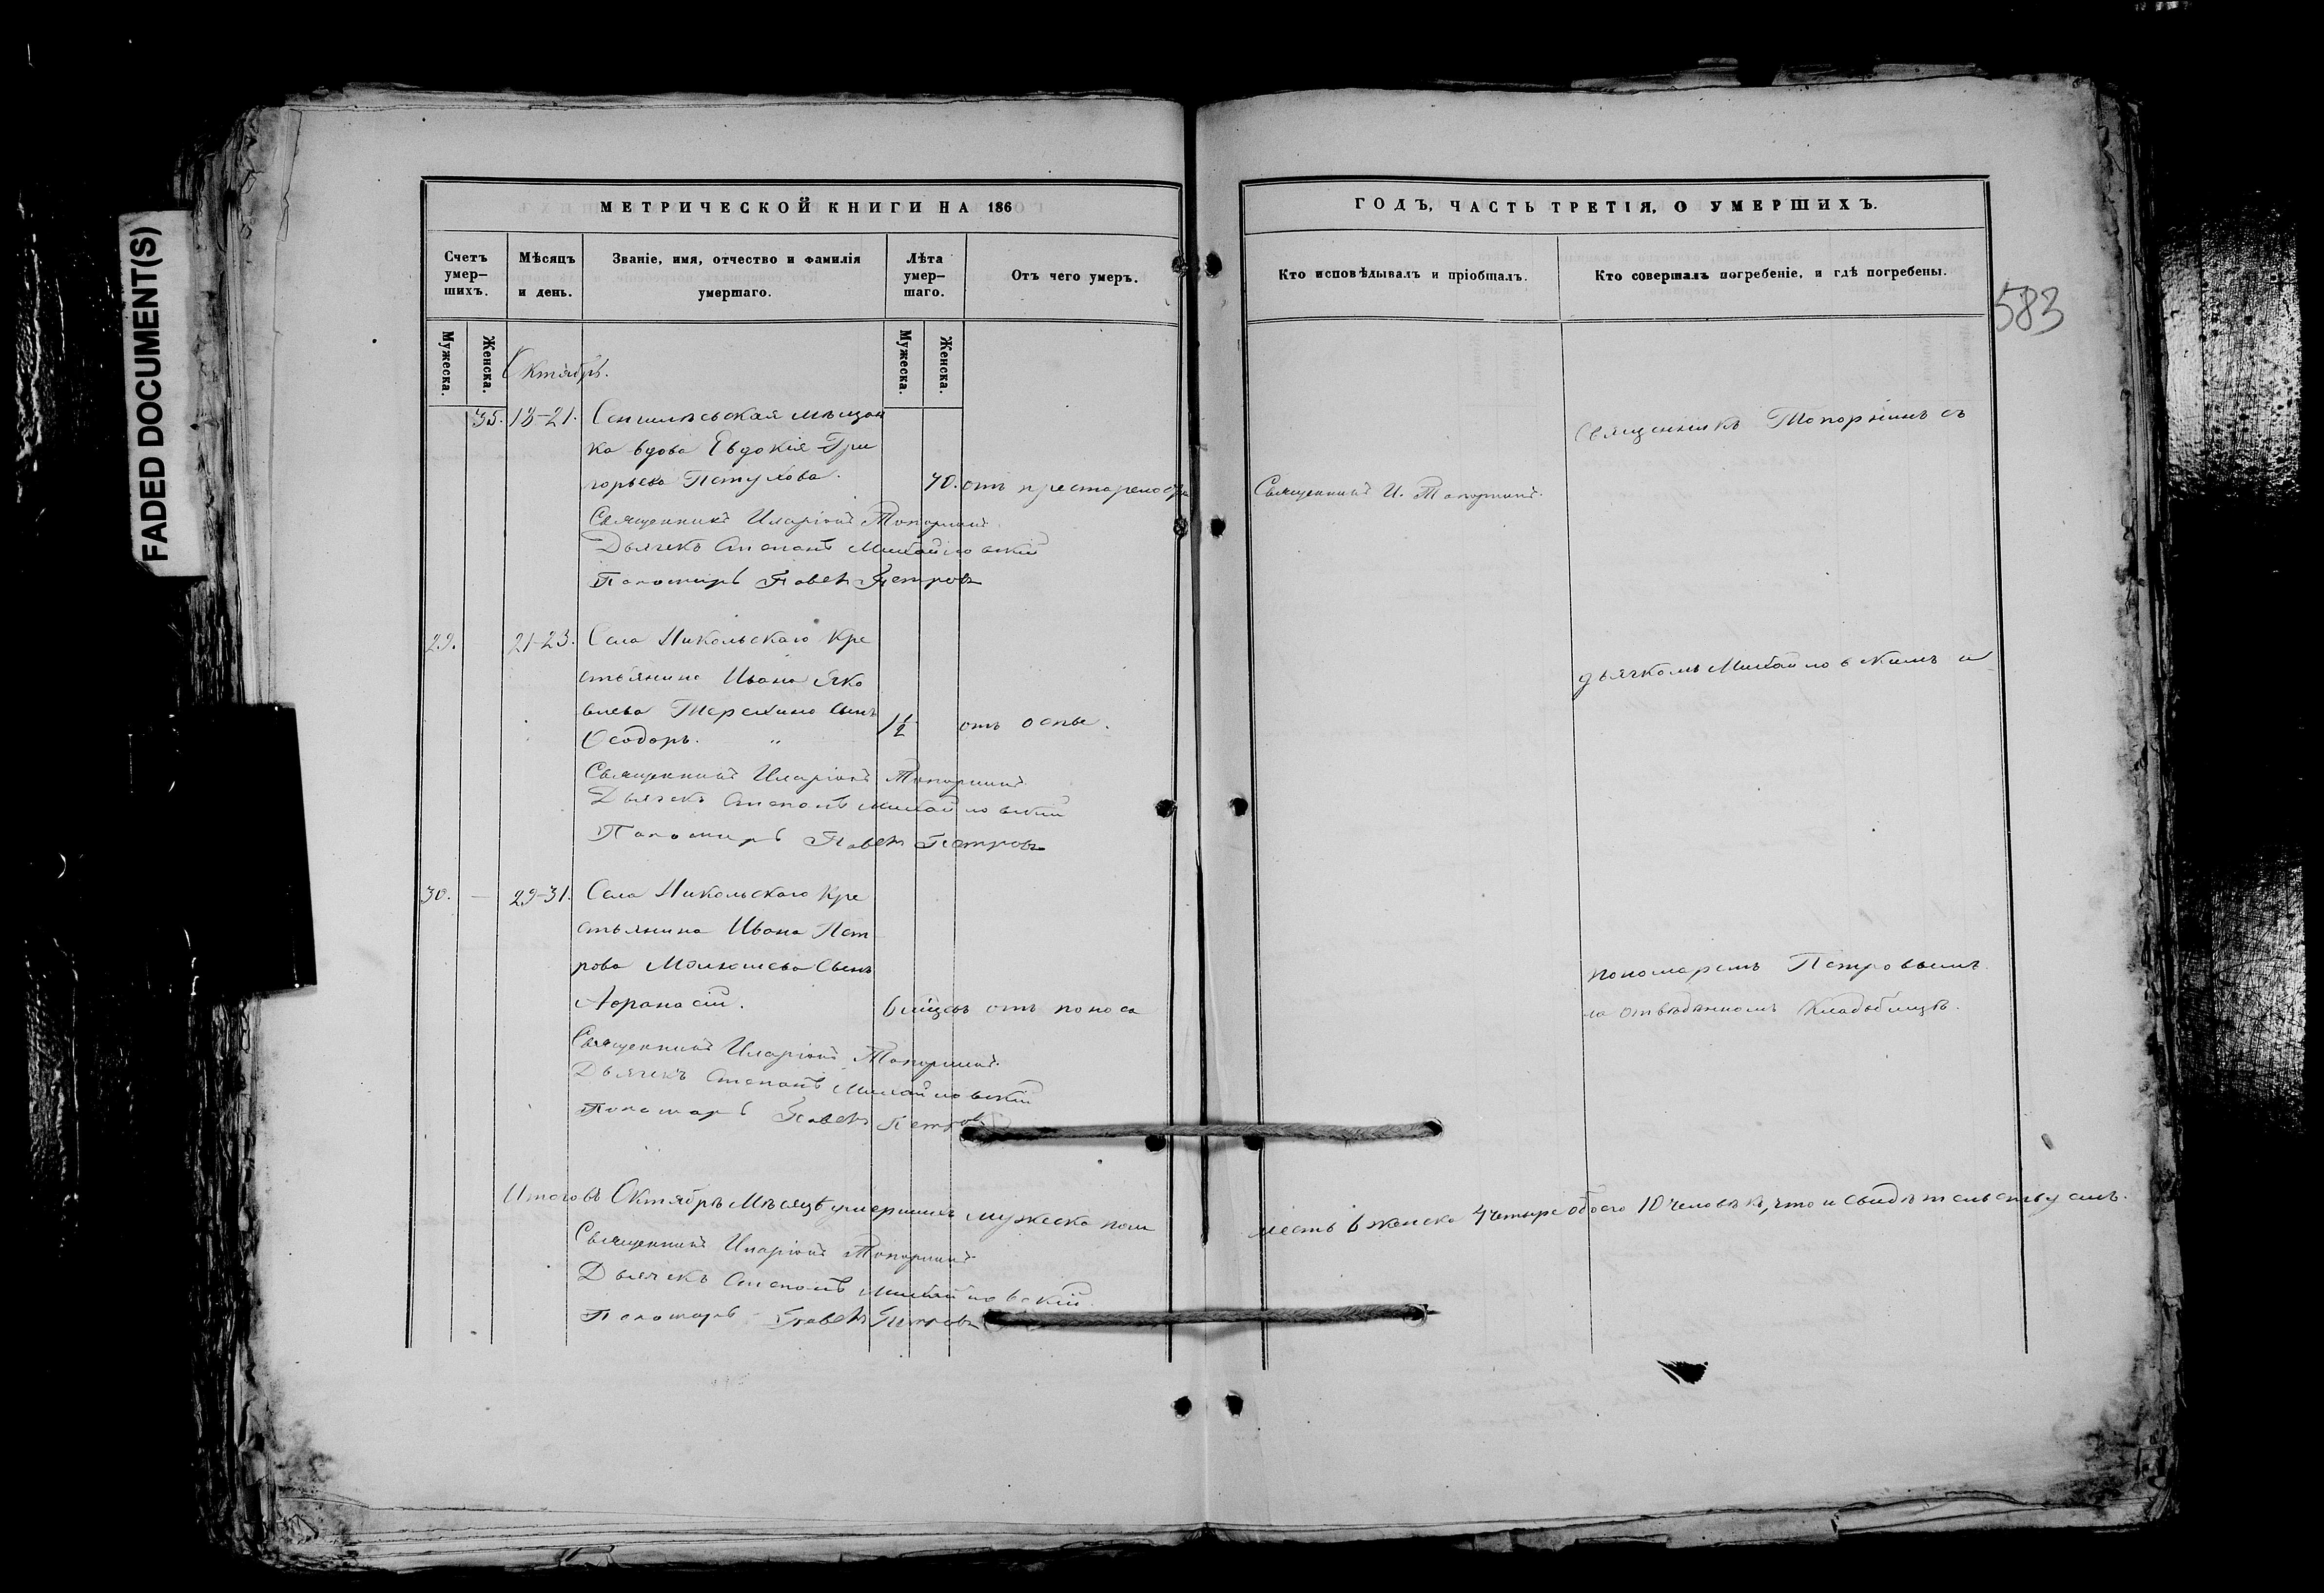 FADED DOCUMENT(S)
МЕТРИЧЕСКОЙ КНИГИ НА 186
Счетъ умер-шихъ.
Мѣсяцъ и день.
Званіе, имя, отчество и фамилія умершаго.
Лѣта умер-шаго.
Отъ чего умеръ.
Мужеска.
Женска.
Мужеска.
Женска.
Октябрь.
35. 13-21. Сенгилѣевская мѣщан
ка вдова Евдокія Гри
горьева Петухова. 70. отъ престарелости
Священникъ Иларіонъ Топорнинъ
Дьячекъ Степанъ Михайловскій
Пономарь Павелъ Петровъ
29. 21-23. Села Никольскаго Кре
стьянина Ивана Яко
влева Терехина сынъ
Ѳеодоръ. " 1 1/2 отъ оспы.
Священникъ Иларіонъ Топорнинъ
Дьячекъ Степанъ Михайловскій
Пономарь Павелъ Петровъ
30. — 29-31. Села Никольскаго Кре
стьянина Ивана Пет
рова сынъ
Афранасій. 6 мѣсец отъ поноса
Священникъ Иларіонъ Топорнинъ
Дьячекъ Степанъ Михайловскій
Пономарь Павелъ Петровъ
Итого въ Октябрѣ Мѣсяцѣ умершихъ мужеска пола
Священникъ Иларіонъ Топорнинъ
Дьячекъ Степанъ Михайловскій
Пономарь Павелъ Петровъ
ГОДЪ, ЧАСТЬ ТРЕТІЯ, О УМЕРШИХЪ.
Кто исповѣдывалъ и пріобщалъ.
Кто совершалъ погребеніе, и гдѣ погребены.
583
Священникъ Топорнинъ съ
Священникъ И. Топорнинъ.
дьячкомъ Михайловскимъ и
пономаремъ Петровымъ
на отведенномъ Кладбищѣ.
шесть 6 женска 4 четыре обоего 10 человѣкъ, что и свидѣтельствуемъ.